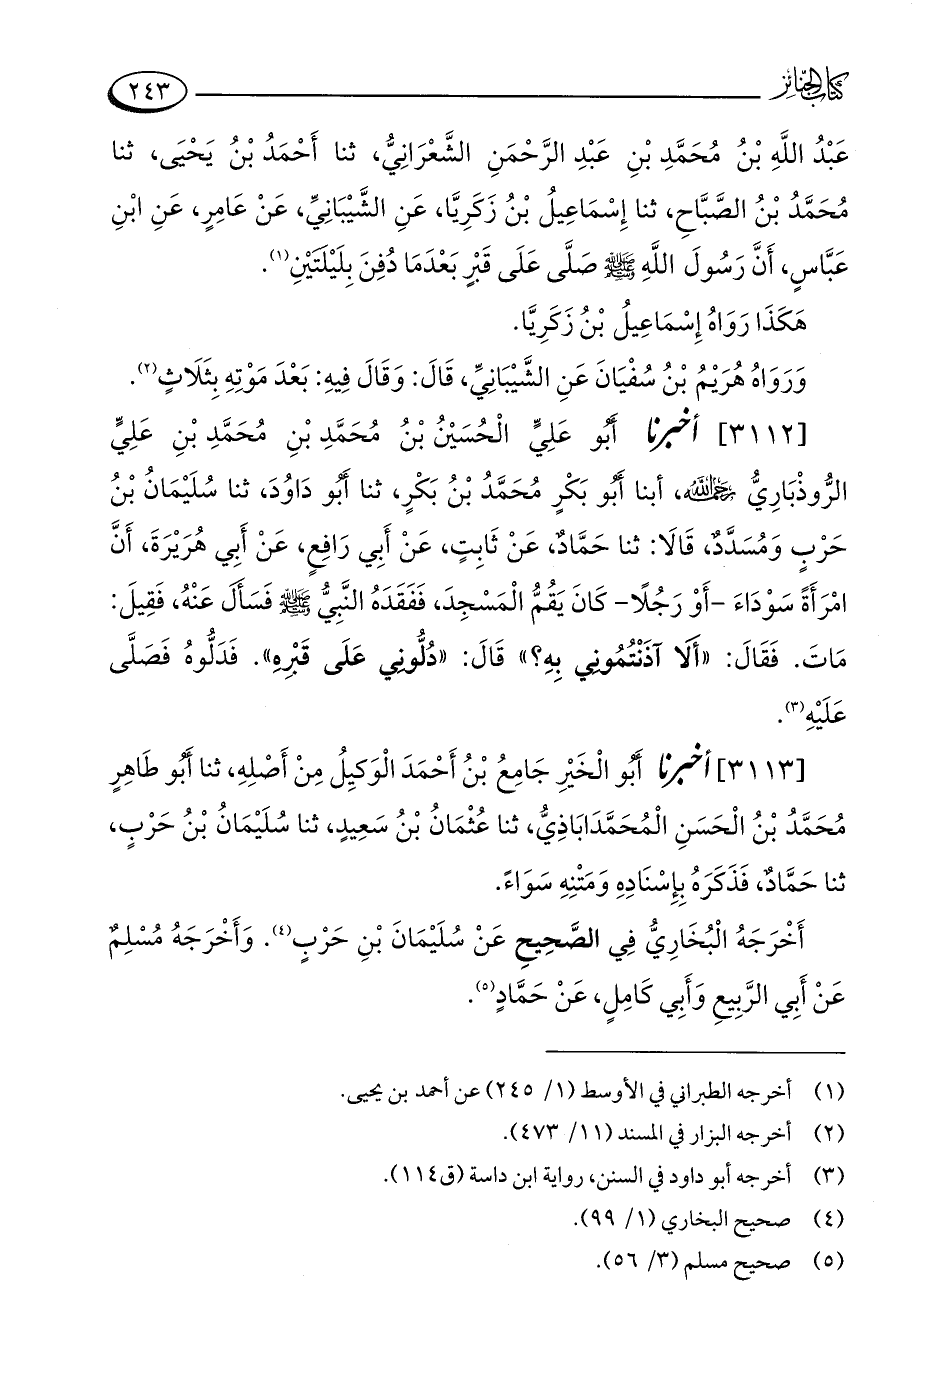 كتاب الجنائز ٢٤٣
عَبْدُ اللَّهِ بْنُ مُحَمَّدِ بْنِ عَبْدِ الرَّحْمَنِ الشَّعْرَانِيُّ، ثنا أَحْمَدُ بْنُ يَحْيَى، ثنا
مُحَمَّدُ بْنُ الصَّبَّاحِ، ثنا إِسْمَاعِيلُ بْنُ زَكَرِيَّا، عَنِ الشَّيْبَانِيِّ، عَنْ عَامِرٍ، عَنِ ابْنِ
عَبَّاسٍ، أَنَّ رَسُولَ اللَّهِ ﷺ صَلَّى عَلَى قَبْرٍ بَعْدَمَا دُفِنَ بِلَيْلَتَيْنِ(١).
هَكَذَا رَوَاهُ إِسْمَاعِيلُ بْنُ زَكَرِيَّا.
وَرَوَاهُ هُرَيْمُ بْنُ سُفْيَانَ عَنِ الشَّيْبَانِيِّ، قَالَ: وَقَالَ فِيهِ: بَعْدَ مَوْتِهِ بِثَلَاثٍ(٢).
[٣١١٢] أخبرنا أَبُو عَلِيٍّ الْحُسَيْنُ بْنُ مُحَمَّدِ بْنِ مُحَمَّدِ بْنِ عَلِيٍّ
الرُّوذْبَارِيُّ رحمه الله، أبنا أَبُو بَكْرٍ مُحَمَّدُ بْنُ بَكْرٍ، ثنا أَبُو دَاوُدَ، ثنا سُلَيْمَانُ بْنُ
حَرْبٍ وَمُسَدَّدٌ، قَالَا: ثنا حَمَّادٌ، عَنْ ثَابِتٍ، عَنْ أَبِي رَافِعٍ، عَنْ أَبِي هُرَيْرَةَ، أَنَّ
امْرَأَةً سَوْدَاءَ -أَوْ رَجُلًا- كَانَ يَقُمُّ الْمَسْجِدَ، فَفَقَدَهُ النَّبِيُّ ﷺ فَسَأَلَ عَنْهُ، فَقِيلَ:
مَاتَ. فَقَالَ: «أَلَا آذَنْتُمُونِي بِهِ؟» قَالَ: «دُلُّونِي عَلَى قَبْرِهِ». فَدَلُّوهُ فَصَلَّى
عَلَيْهِ(٣).
[٣١١٣] أخبرنا أَبُو الْخَيْرِ جَامِعُ بْنُ أَحْمَدَ الْوَكِيلُ مِنْ أَصْلِهِ، ثنا أَبُو طَاهِرٍ
مُحَمَّدُ بْنُ الْحَسَنِ الْمُحَمَّدَابَاذِيُّ، ثنا عُثْمَانُ بْنُ سَعِيدٍ، ثنا سُلَيْمَانُ بْنُ حَرْبٍ،
ثنا حَمَّادٌ، فَذَكَرَهُ بِإِسْنَادِهِ وَمَتْنِهِ سَوَاءً.
أَخْرَجَهُ الْبُخَارِيُّ فِي الصَّحِيحِ عَنْ سُلَيْمَانَ بْنِ حَرْبٍ(٤). وَأَخْرَجَهُ مُسْلِمٌ
عَنْ أَبِي الرَّبِيعِ وَأَبِي كَامِلٍ، عَنْ حَمَّادٍ(٥).
(١) أخرجه الطبراني في الأوسط (١/ ٢٤٥) عن أحمد بن يحيى.
(٢) أخرجه البزار في المسند (١١/ ٤٧٣).
(٣) أخرجه أبو داود في السنن، رواية ابن داسة (ق١١٤).
(٤) صحيح البخاري (١/ ٩٩).
(٥) صحيح مسلم (٣/ ٥٦).